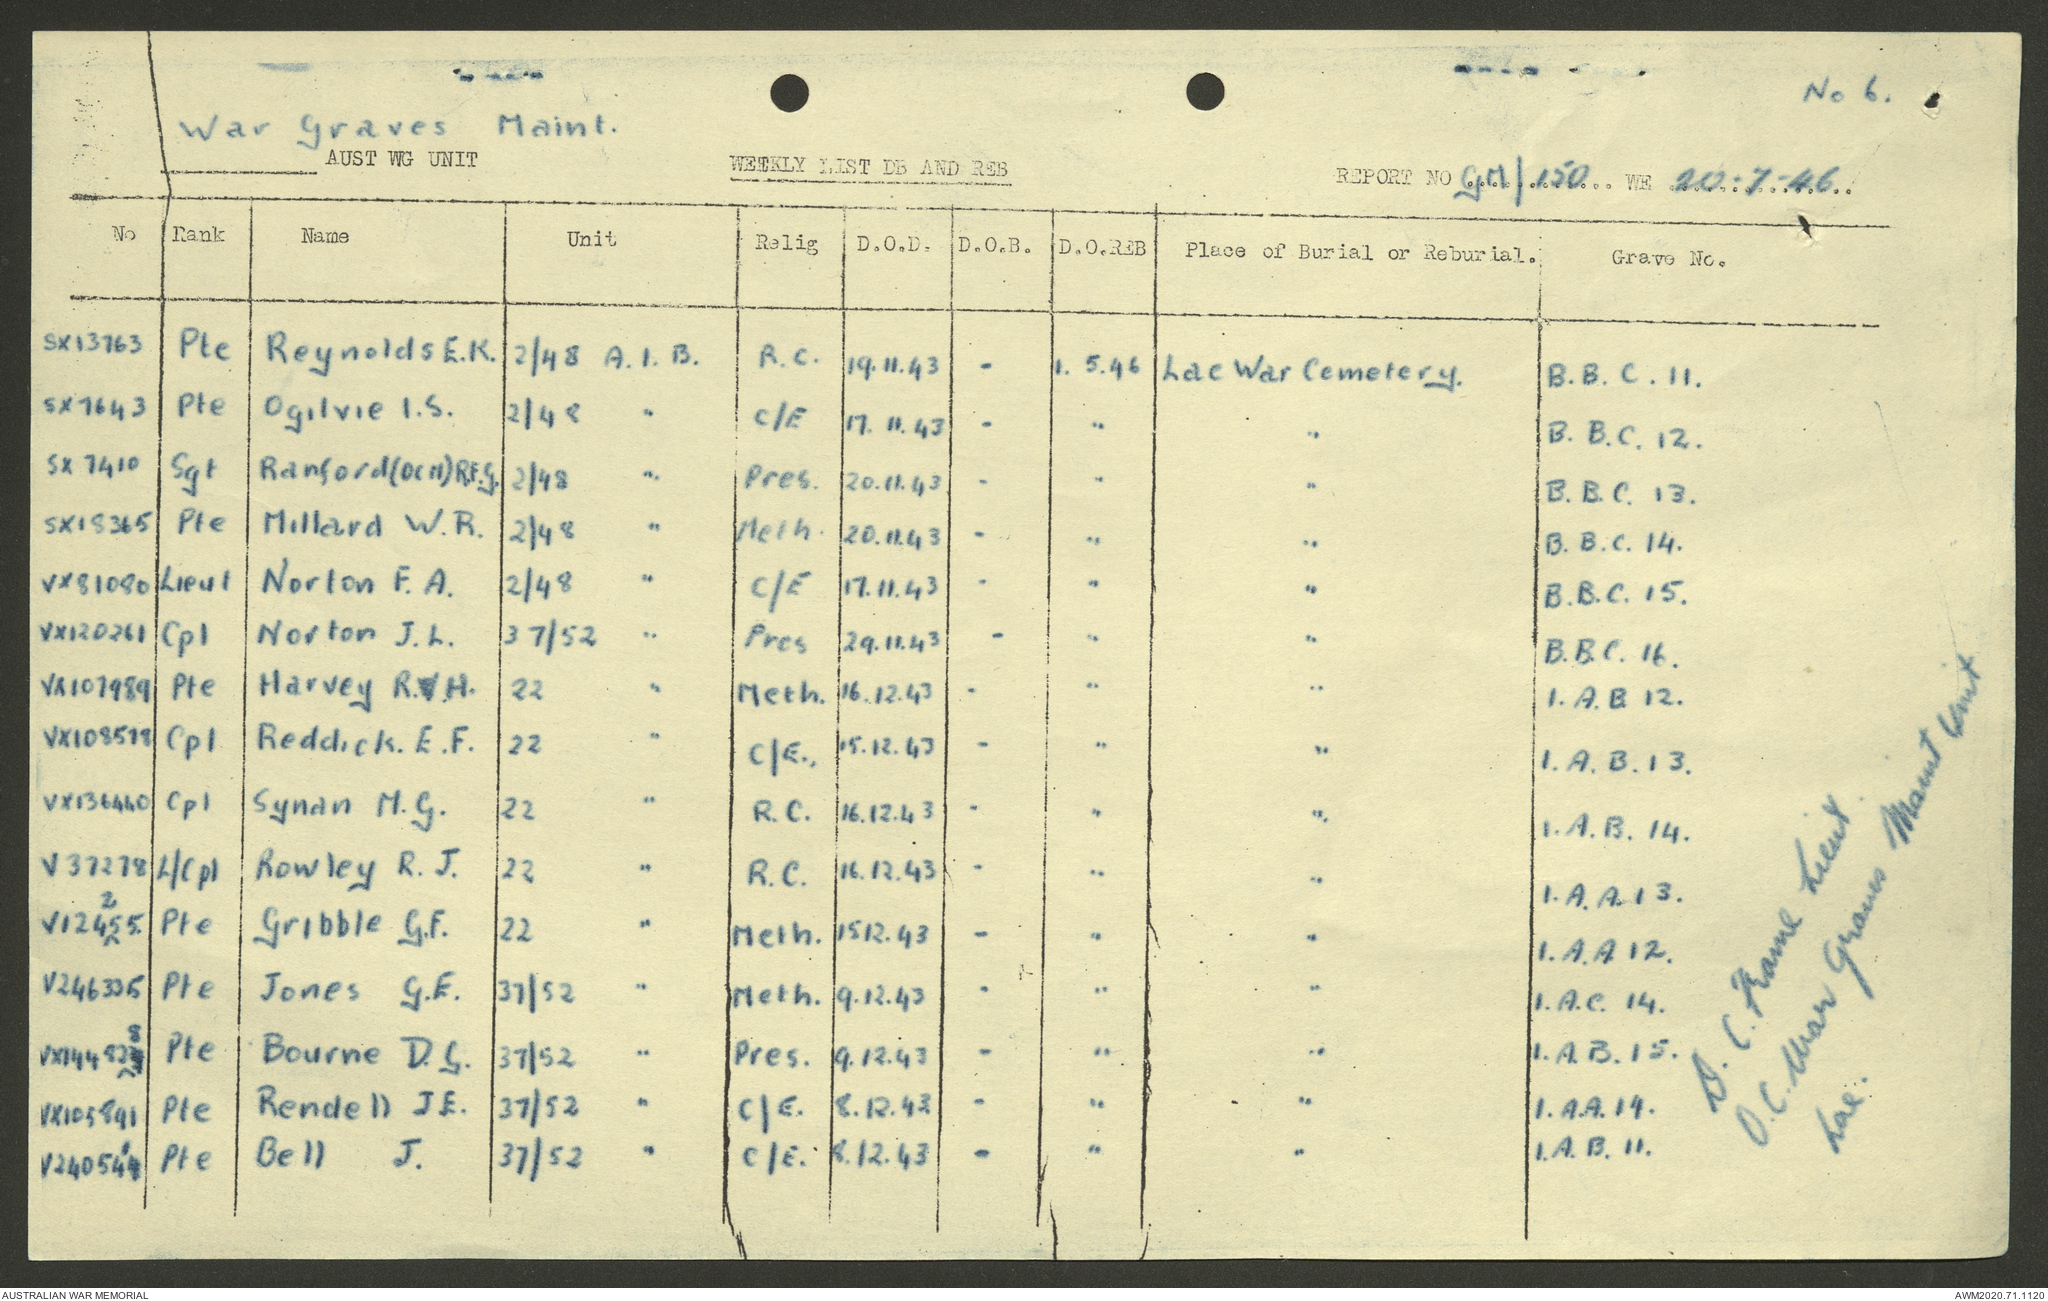 No 6.
War Graves Maint.
AUST WG UNIT WEEKLY LIST DB AND REB REPORT NO GM/150 WE 20-7-46
No Rank Name Unit Relig D.O.D. D.O.B. D.O.REB Place of Burial or Reburial. Grave No.
SX13763 Pte Reynolds E.K. 2/48 A.I.B. R.C. 19.11.43 - 1.5.46 Lae War Cemetery. B.B.C.11.
SX7643 Pte Ogilvie I.S. 2/48 " C/E 17.11.43 - " " B.B.C.12.
SX7410 Sgt Ranford (DCM) R.F.G. 2/48 " Pres. 20.11.43 - " " B.B.C.13.
SX18365 Pte Millard W.R. 2/48 " Meth. 20.11.43 - " " B.B.C.14.
VX81080 Lieut Norton F.A. 2/48 " C/E 17.11.43 - " " B.B.C.15.
VX120261 Cpl Norton J.L. 37/52 " Pres 29.11.43 - " " B.B.C.16.
VX107989 Pte Harvey R.H. 22 " Meth. 16.12.43 - " " 1.A.B 12.
VX108578 Cpl Reddick. E.F. 22 " C/E., 15.12.43 - " " 1.A.B.13.
VX136440 Cpl Synan M.G. 22 " R.C. 16.12.43 - " " 1.A.B.14.
V37278 L/Cpl Rowley R.J. 22 " R.C. 16.12.43 - " " 1.A.A.13.
V124255 Pte Gribble G.F. 22 " Meth. 15 12.43 - " " 1.A.A 12.
V246335 Pte Jones G.E. 37/52 " Meth. 9.12.43 - " " 1.A.C.14.
Pte Bourne D.G. 37/52 " Pres. 9.12.43 - " " 1.A.B.15.
VX105891 Pte Rendell J.E. 37/52 " C/E. 8.12.43 - " " 1.A.A.14.
Pte Bell J. 37/52 " C/E. 8.12.43 - " " 1.A.B.11.
D. C. Frame Lieut.
O.C. War Graves Maint Unit
Lae.
AUSTRALIAN WAR MEMORIAL AWM2020.71.1120